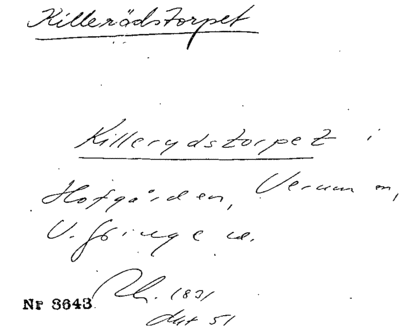 Killerödstorpet
Killerydstorpet i
Hofgården, Verum sn,
V. Göinge hd.
Nr 3643
1831